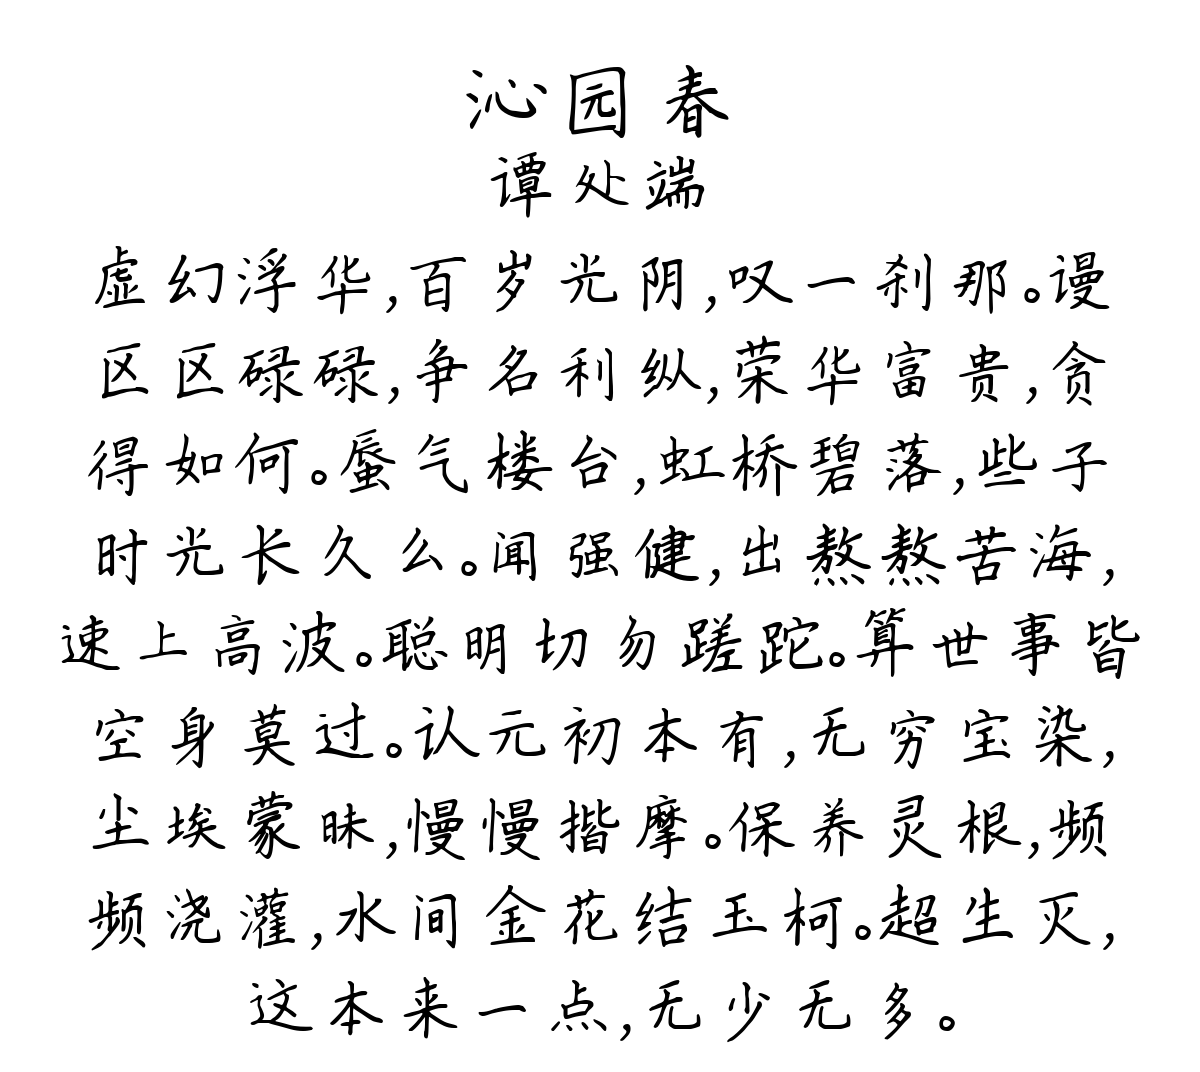 沁园春
谭处端
虚幻浮华,百岁光阴,叹一刹那。谩
区区碌碌,争名利纵,荣华富贵,贪
得如何。蜃气楼台,虹桥碧落,些子
时光长久么。闻强健,出熬熬苦海,
速上高波。聪明切勿蹉跎。算世事皆
空身莫过。认元初本有,无穷宝染,
尘埃蒙昧,慢慢揩摩。保养灵根,频
频浇灌,水间金花结玉柯。超生灭,
这本来一点,无少无多。